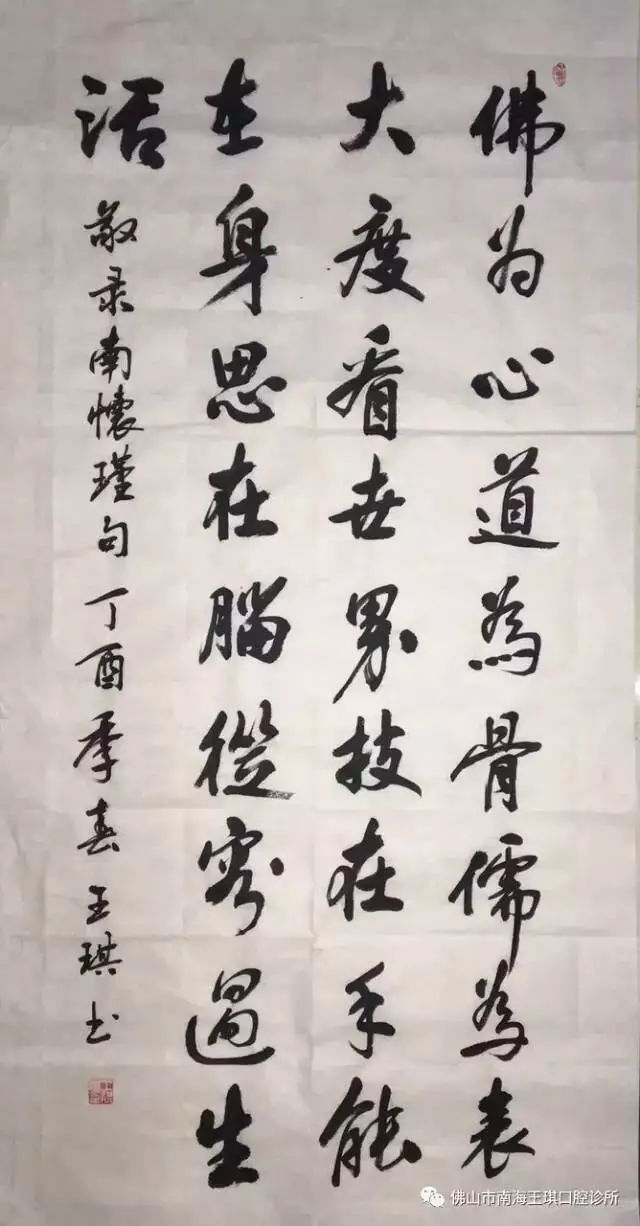 佛为心道為骨儒為表
大度看世界技在手能
在身思在腦從容過生
活
敬录南懷瑾句丁酉季春王琪书
佛山市南海王琪口腔诊所